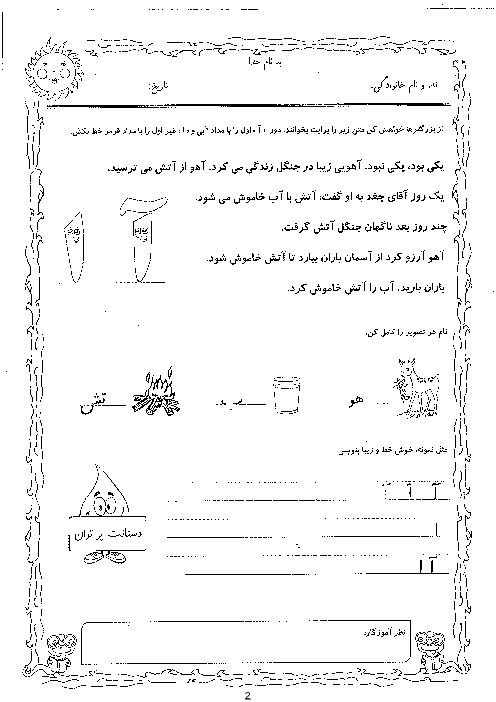 به نام خدا
نام و نام خانوادگی: تاریخ:
از بزرگترها خواهش کن متن زیر را برایت بخوانند. دور « آ » اول را با مداد آبی و « ا » غیر اول را با مداد قرمز خط بکش.
یکی بود، یکی نبود. آهویی زیبا در جنگل زندگی می کرد. آهو از آتش می ترسید.
یک روز آقای جغد به او گفت: آتش با آب خاموش می شود.
چند روز بعد ناگهان جنگل آتش گرفت.
آهو آرزو کرد از آسمان باران ببارد تا آتش خاموش شود.
باران بارید. آب را آتش خاموش کرد.
نام هر تصویر را کامل کن.
هو
تش
مثل نمونه، خوش خط و زیبا بنویس.
آ آ
ا
آ ا
دستانت پر توان
نظر آموزگار:
2